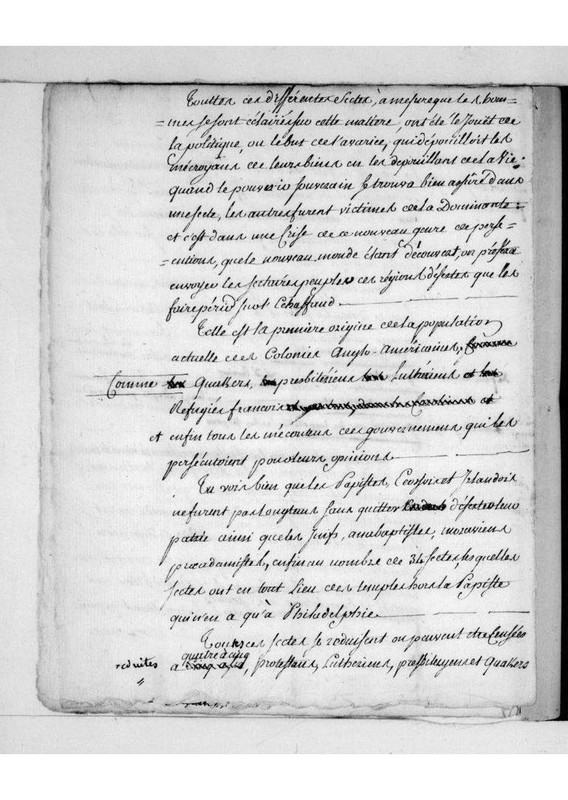 Touttes ces différentes sectes, à mesure que les hom=
=mes se sont éclairés sur cette matière, ont été le jouët de
la politique, ou le but de l'avarice, qui dépouilloit les
mécroyans de leurs biens en les dépouillant de la Vie.
quand le pouvoir souverain se trouva bien assuré dans
une secte, les autres furent victimes de la Dominante
et c'est dans une Crise de ce nouveau genre de persé=
=cutions, que le nouveau monde étant découvert, on préféra
envoyer les sectaires peupler ces régions désertes que les
faire périr sur l'Echaffaud.
Telle est la premiere origine de la population
actuelle des Colonies Anglo-américaines,
Comme Quakers, presbitériens Luthériens
Refugiés francois
et enfin tous les mécontens des gouvernemens qui les
persécutoient pour leurs opinions.
Tu vois bien que les Papistes, Ecossois et Irlandois
ne furent pas longtems sans quitter déserter leur
patrie ainsi que les juifs, anabaptistes, moraviens
præadamistes, enfin au nombre de 34 sectes, lesquelles
sectes ont en tout Lieu des temples hors la Papiste
qui n'en a qu'à Philadelphie.
Toutes ces sectes se réduisent ou peuvent etre Censées
réduites a quatre a cinq, protestans, Luthériens, presbiteriens et Quakers